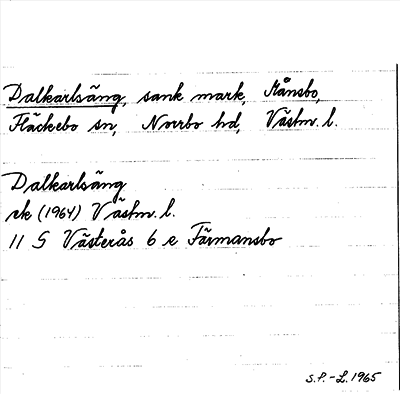 Dalkarlsäng, sank mark, Månsbo,
Fläckebo sn, Norrbo hd, Västm. l.
Dalkarlsäng
ek (1964) Västm. l.
11 G Västerås 6 e Färmansbo
S.P.-L. 1965